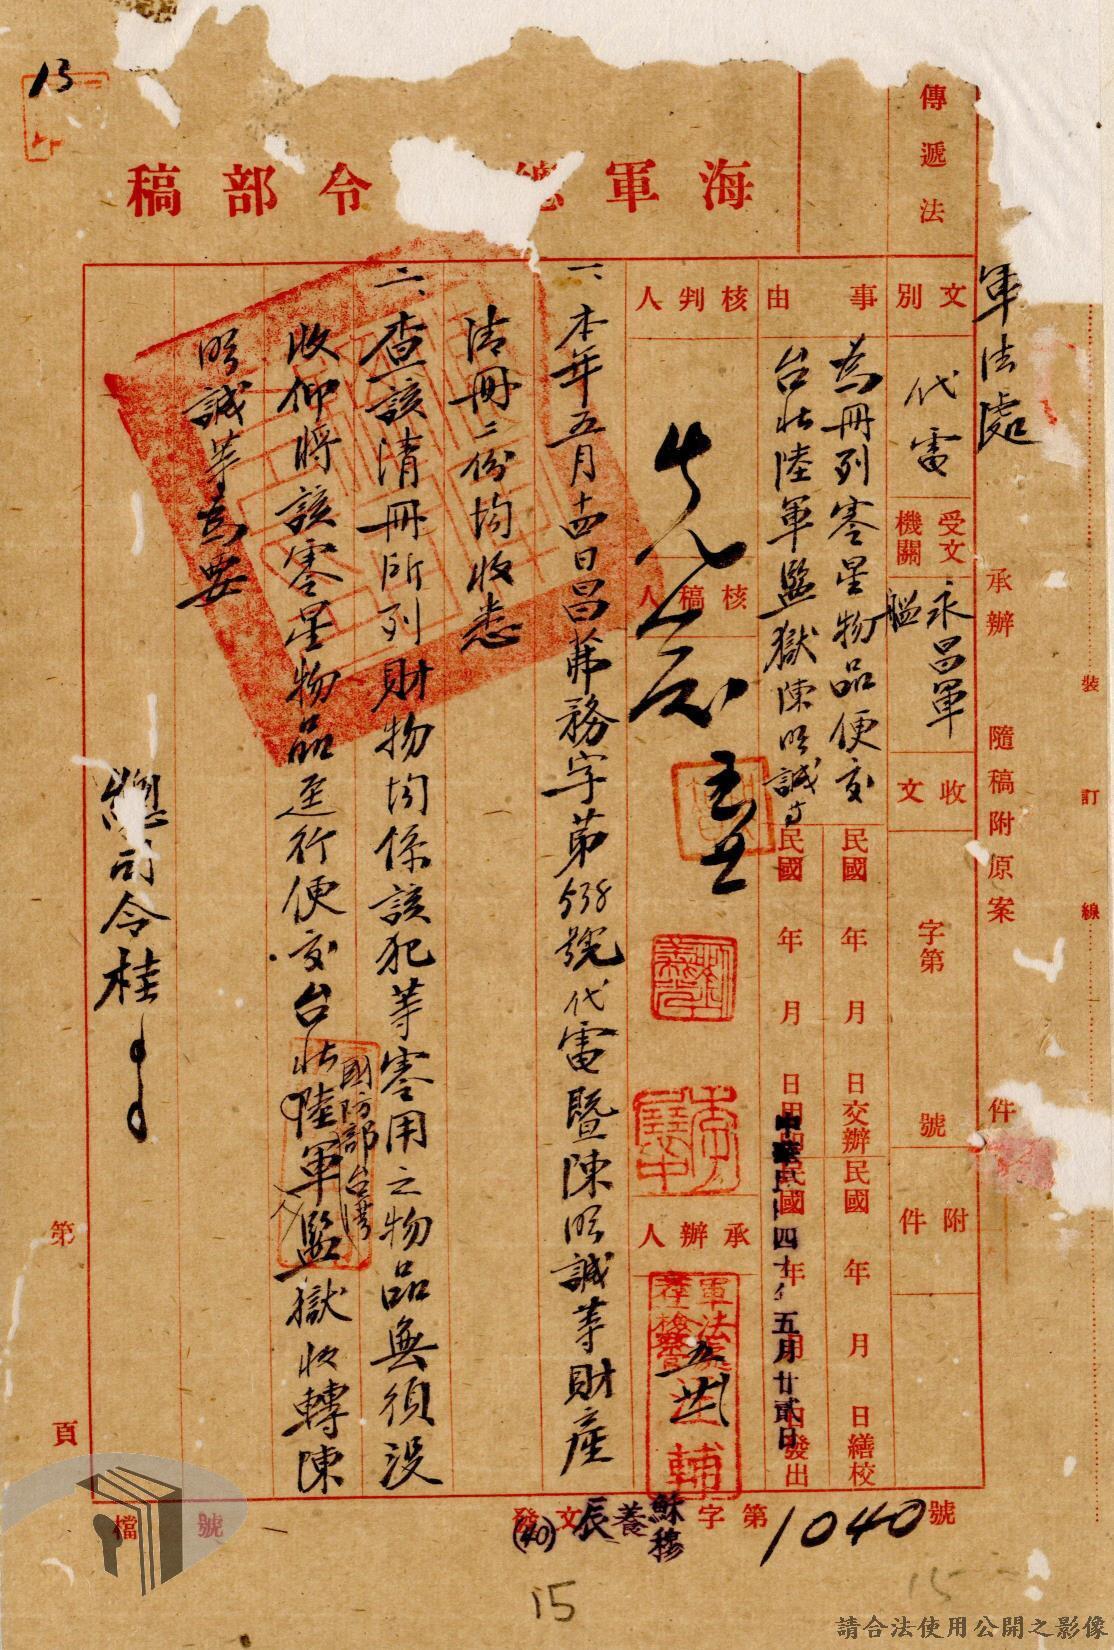 軍法處
傳遞法
海軍總 令部稿
文別
代電
受文機關
永昌軍艦
收文
字第 號
附件
承辦 隨稿附原案 件
裝 訂 線
事由
為冊列零星物品便交
台北陸軍監獄陳明誠等
民國 年 月 日交辦
民國 年 月 日繕校
中華民國四十年五月廿貳日
民國 年 月 日發出
核判人
核稿人
承辦人
一、本年五月十四日昌莆務字第538號代電暨陳明誠等財產
清冊二份均收悉
二、查該清冊所列財物均係該犯等零用之物品無須沒
收仰將該零星物品逕行便交台北陸軍監獄收轉陳
國防部台灣
明誠等為要
總司令桂
第 頁
發文 字第1040號
(40)辰養
檔 號
13
15
15
請合法使用公開之影像